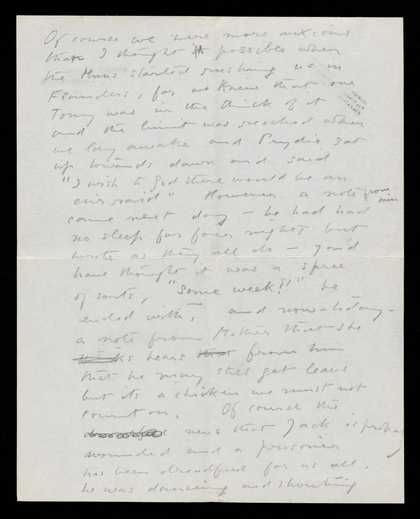 Of course we were more anxious
than I thought it possible when
the Huns started rushing us in
Flanders, for we knew that our
Tony was in the thick of it
and the limit was reached when
we lay awake and Prydie sat
up towards dawn and said
"I wish to God there would be an
air-raid" However a note from him
came next day – he had had
no sleep for four nights but
wrote as they all do – you'd
have thought it was a spree
of sorts, "Some week!!" he
ended with, and now today –
a note from Mother that she
hears from him
that he may still get leave
but its a chicken we must not
count on. Of course the
news that Jack is
wounded and a prisoner
has been dreadful for us all,
he was dancing and shouting